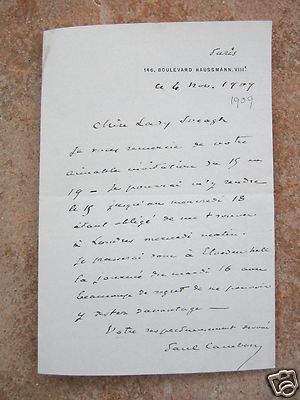 Paris
146, BOULEVARD HAUSSMANN. VIIIᵉ
ce 4 Nov. 1909
1909
Chère Lady Iveagh
Je vous remercie de votre
aimable invitation du 15 au
19 - Je pourrai m'y rendre
le 15 jusqu'au mercredi
étant obligé de me trouver
à Londres mercredi matin.
Je passerai donc à Elveden Hall
la journée du mardi 16 avec
beaucoup de regret de ne pouvoir
y rester davantage -
Votre respectueusement dévoué
Paul Cambon